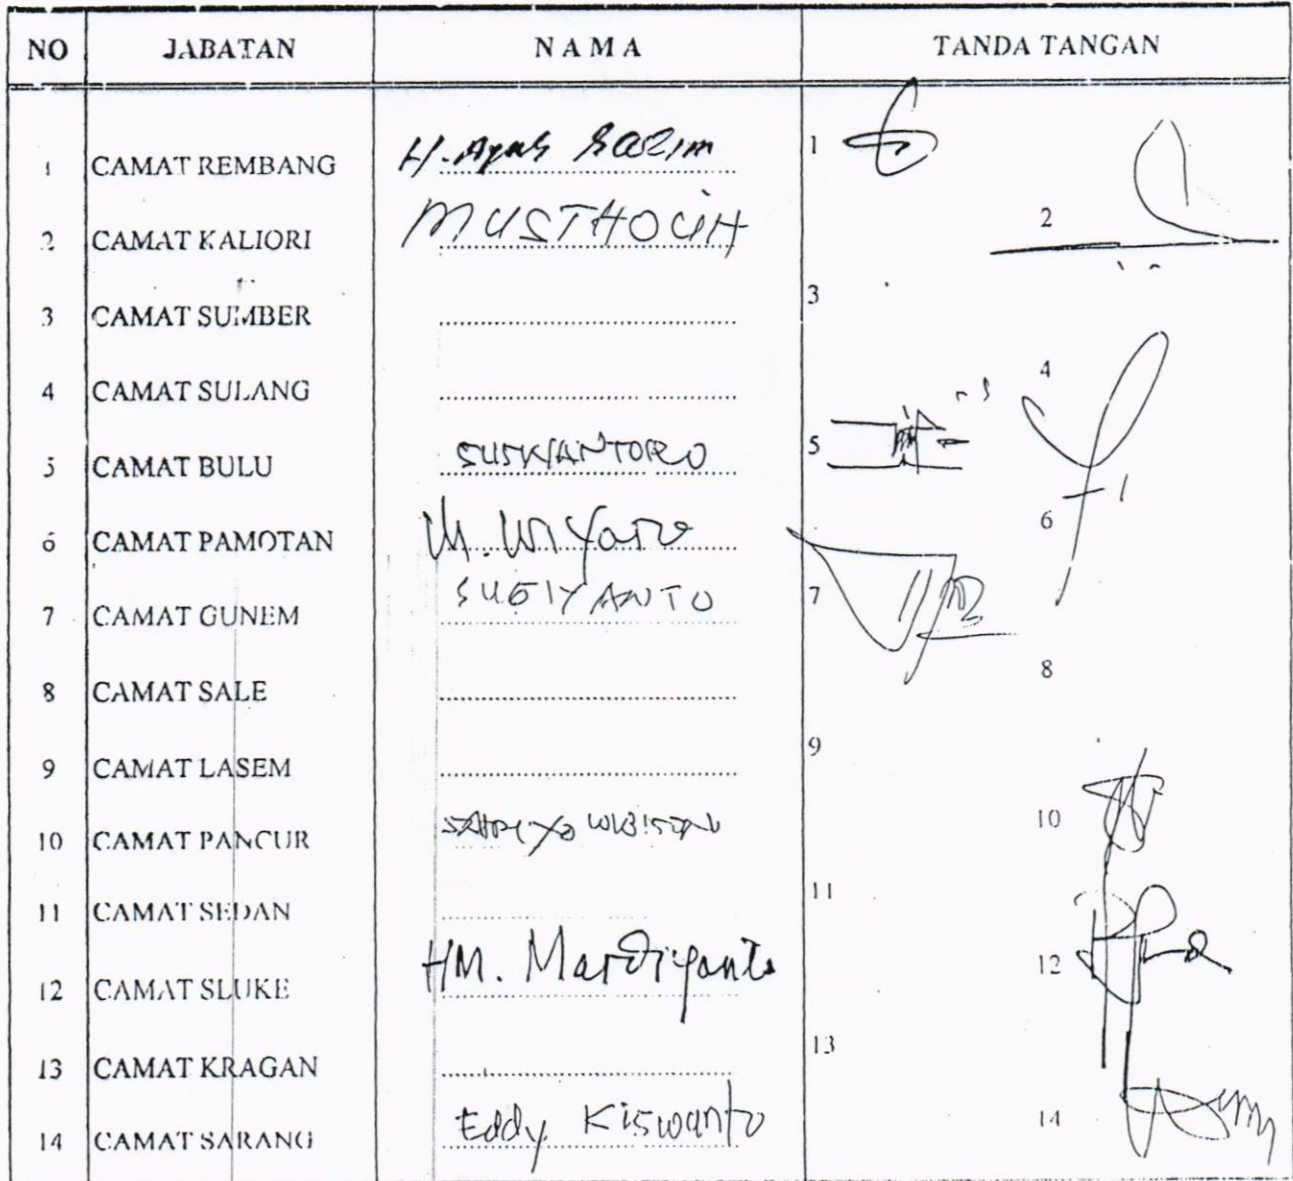 NO JABATAN N A M A TANDA TANGAN
1 CAMAT REMBANG H. Agus Salim 1
2 CAMAT KALIORI MUSTHOLIH 2
3 CAMAT SUMBER 3
4 CAMAT SULANG 4
5 CAMAT BULU SUSWANTORO 5
6 CAMAT PAMOTAN M. Wiyoto 6
7 CAMAT GUNEM SUGIYANTO 7
8 CAMAT SALE 8
9 CAMAT LASEM 9
10 CAMAT PANCUR WIBISONO 10
11 CAMAT SEDAN 11
12 CAMAT SLUKE HM. Mardiyanto 12
13 CAMAT KRAGAN 13
14 CAMAT SARANG Eddy Kiswanto 14